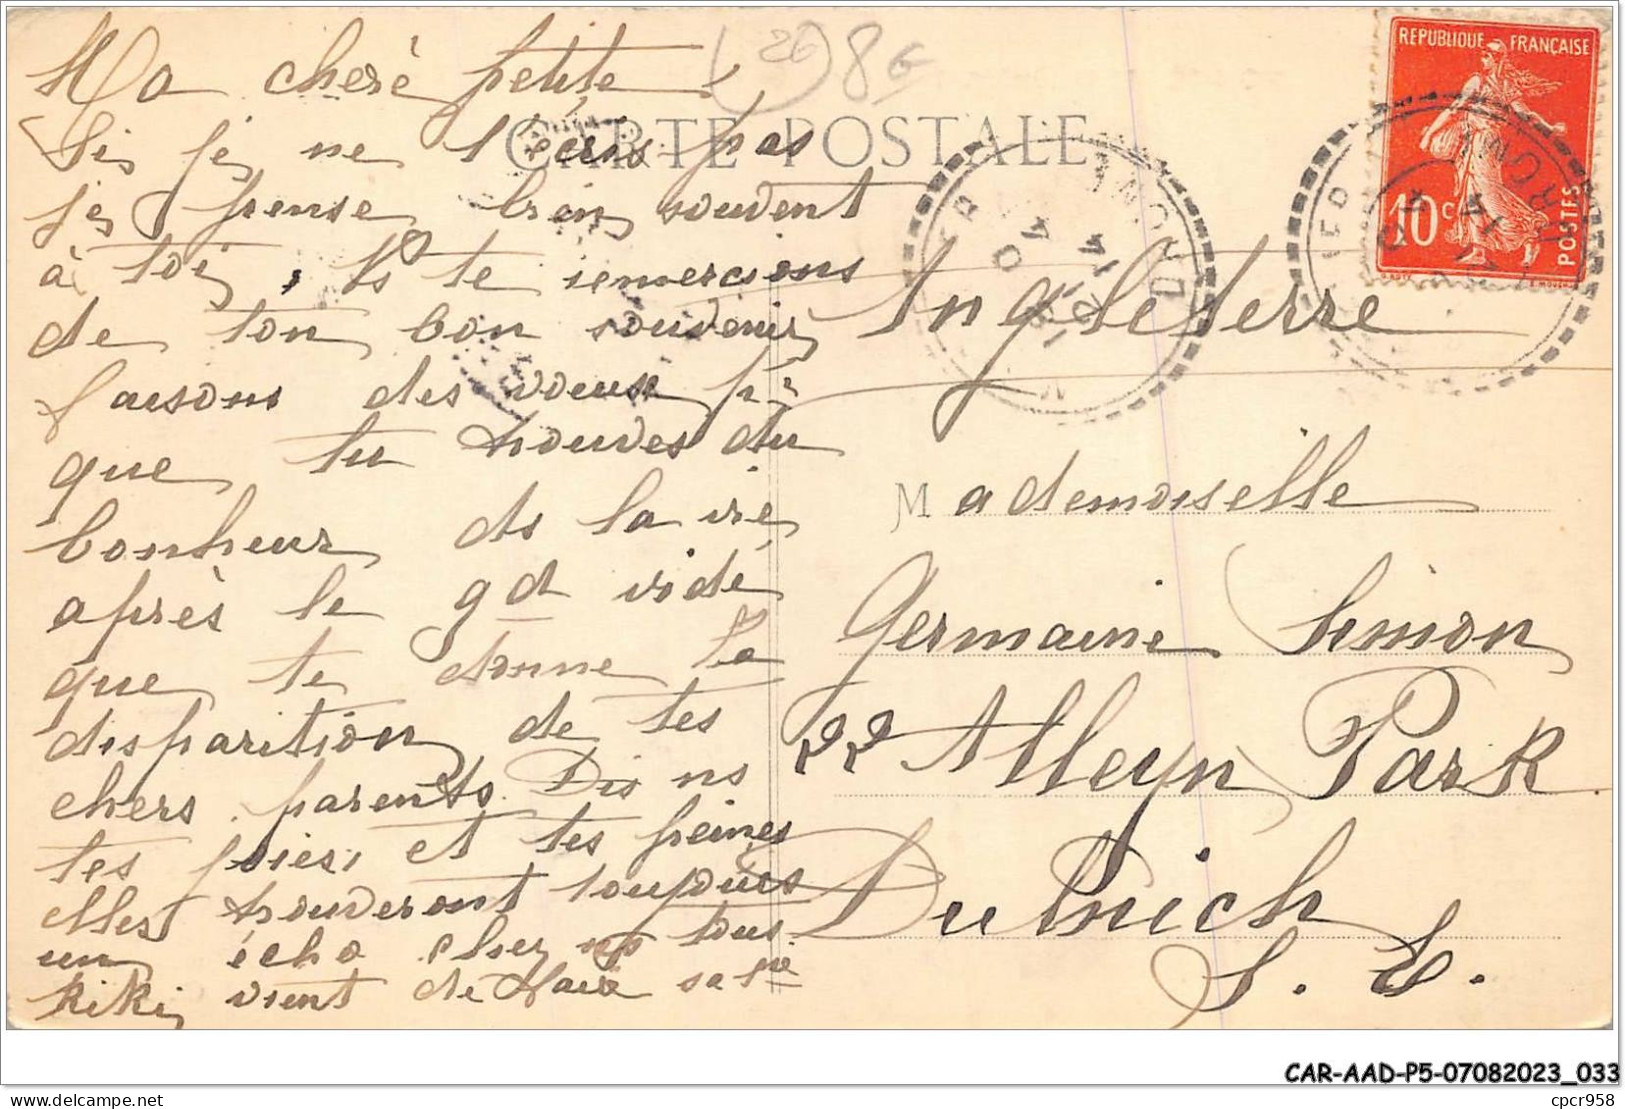 Ma cherè petite
Si je ne t'écris pas
je pense bien souvent
à toi, ns te remercions
de ton bon souvenir
faisons des voeux pr
que tu trouves du
bonheur ds la vie
après le gd vide
que te donne la
disparition de tes
chers parents. Dis ns
tes joies, et tes peines
elles trouveront toujours
un écho chez ns tous.
Kiki vient de faire sa 1re
(26) 8€
CARTE POSTALE
RÉPUBLIQUE FRANÇAISE
10c
POSTES
Angleterre
Mademoiselle
Germaine Simon
22 Alleyn Park
Dulwich
S. E.
CAR-AAD-P5-07082023_033
delcampe.net
cpcr958